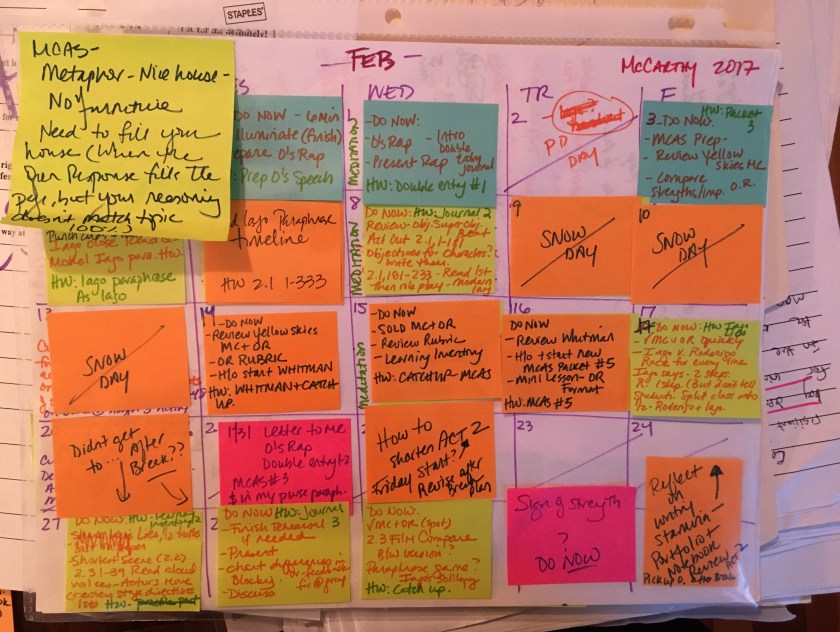 STAPLES
FEB
McCARTHY 2017
MCAS-
Metapher - Nice house -
No furniture
Need to fill your
house (When the
Open Response fills the
page, but your reasoning
doesn't match topic
WED
TR
F
DO NOW - 6 min
Illuminate (finish)
Prepare O's Rap
Prep O's Speech
MEDITATION
-DO NOW:
O's Rap - Intro
Double
- Present Rap Entry
Journal
HW: Double entry #1
2
PD
DAY
3
HW: Packet
3
DO NOW:
- MCAS Prep-
- Review Yellow
Skies MC
- Compare
Stregths/Imp. O.R.
Iago close read
Model Iago para. HW
HW: Iago paraphrase
As Iago
Iago Paraphrase
timeline
HW 2.1 1-333
8
MEDITATION
DO NOW: HW: Journal 2
Review - Obj. Super Obj.
Act Out 2.1, 1-181
Objectives for characters?
write them.
2.1, 181-233 - Read 1st
then role play - modern
9
SNOW
DAY
10
SNOW
DAY
13
SNOW
DAY
14
-DO NOW
-Review Yellow Skies
MC + OR
- OR RUBRIC
- H/o start WHITMAN
HW: WHITMAN + CATCH
UP.
15
Meditation
-DO NOW
- SOLD MC + OR
- Review Rubric
- Learning Inventory
HW: CATCH UP MCAS
16
DO NOW
- Review Whitman
- H/o + start new
MCAS Packet #5
- Mini Lesson - OR
Format
HW: MCAS #5
17
DO NOW: HW
MC + OR Quickly
- Iago v. Roderigo
Race for every line
Iago Says - 2 steps
R - 1 step. (But don't tell
students. Split class into
1/2 - Roderigo + Iago.
Didn't get
to... After
Break??
1/31 Letter to Me
O's Rap
Double entry 1+2
MCAS #3
$ in my purse paraph.
How to
shorten ACT 2
Friday Start?
Revise after
Break plan
23
24
27
DO NOW: HW:
Shortest Scene (2.2)
2.3 1-39 Read aloud
voices - Actors Have
creating stage directions
HW-
DO NOW HW: Journal
3
- Finish Rehearsal
if needed
- Present
- chart differences in
Blocking
- Discuss
DO NOW:
MC + OR (spot)
2.3 Film Compare
B/W version?
Paraphrase Same?
Iago Soliloquy
HW: Catch up.
Sign of Stregth
?
DO NOW
Reflect
on
writing
Stamina -
Portfolio +
Notebook
Review
Act 2
Pick up @ After Break